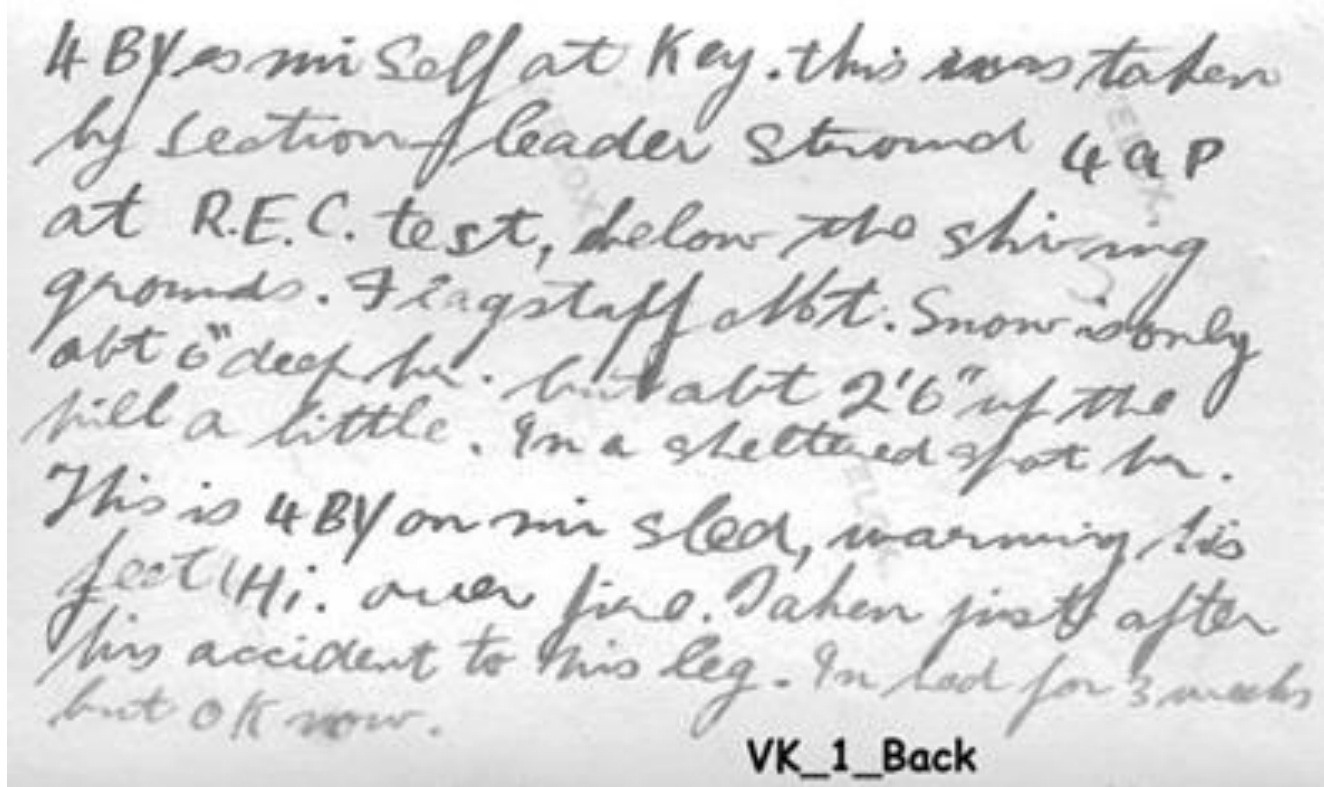 4 BY es mi self at Key. this was taken
by section leader Stround 4 GP
at R.E.C. test, below the shiing
grounds. Flagstaff Mt. Snow is only
abt 6" deep hr. but abt 2'6" up the
hill a little. In a sheltered spot hr.
This is 4 BY on mi sled, warming his
feet (Hi. over fire. Taken just after
his accident to his leg. In bed for 3 weeks
but OK now.
VELOX
VELOX
VELOX
VK_1_Back